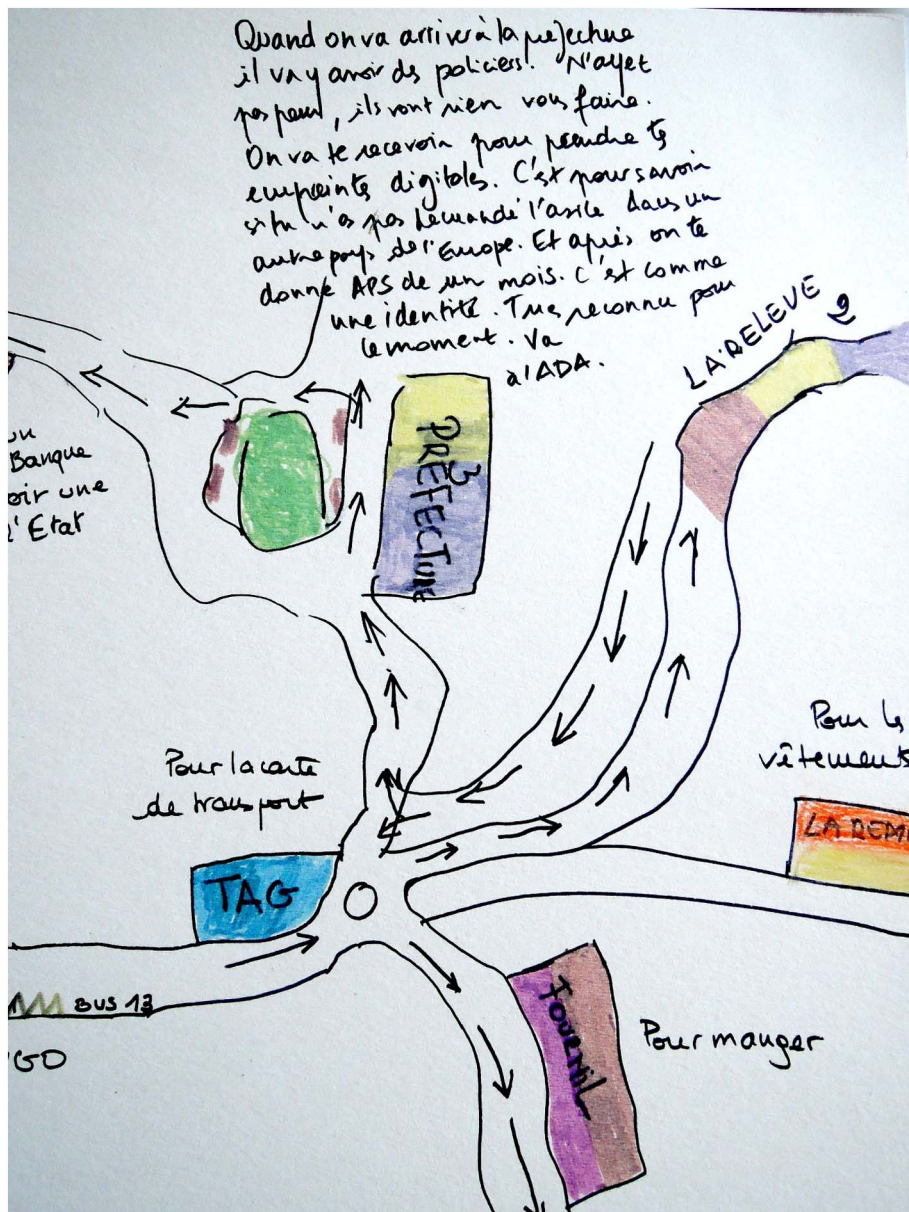 Quand on va arriver à la préfecture
il va y avoir des policiers. N'ayet
pas peur, ils vont rien vous faire.
On va te recevoir pour prendre te
empreinte digitales. C'est pour savoir
si tu n'as pas demandé l'asile dans un
autre pays de l'Europe. Et après on te
donne APS de un mois. C'est comme
une identité. Tu es reconnu pour
le moment. Va
à l'ADA.
LA RELEVE
2
un
Banque
oir une
d'Etat
3
PREFECTURE
Pour la carte
de transport
Pour les
vêtements
TAG
LA REMI
BUS 13
GO
FOURNIL
Pour manger